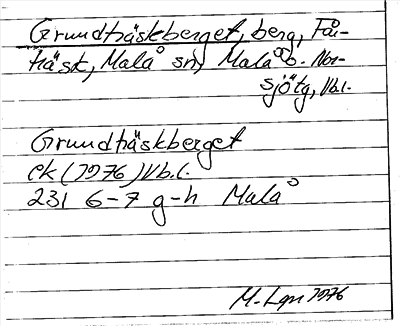 Grundträskberget, berg, Få-
träsk, Malå sn, Malå o. Nor-
sjötg, Vb.l.
Grundträskberget
ek (1976) Vb.l.
231 6-7 g-h Malå
M. Lgn 1976